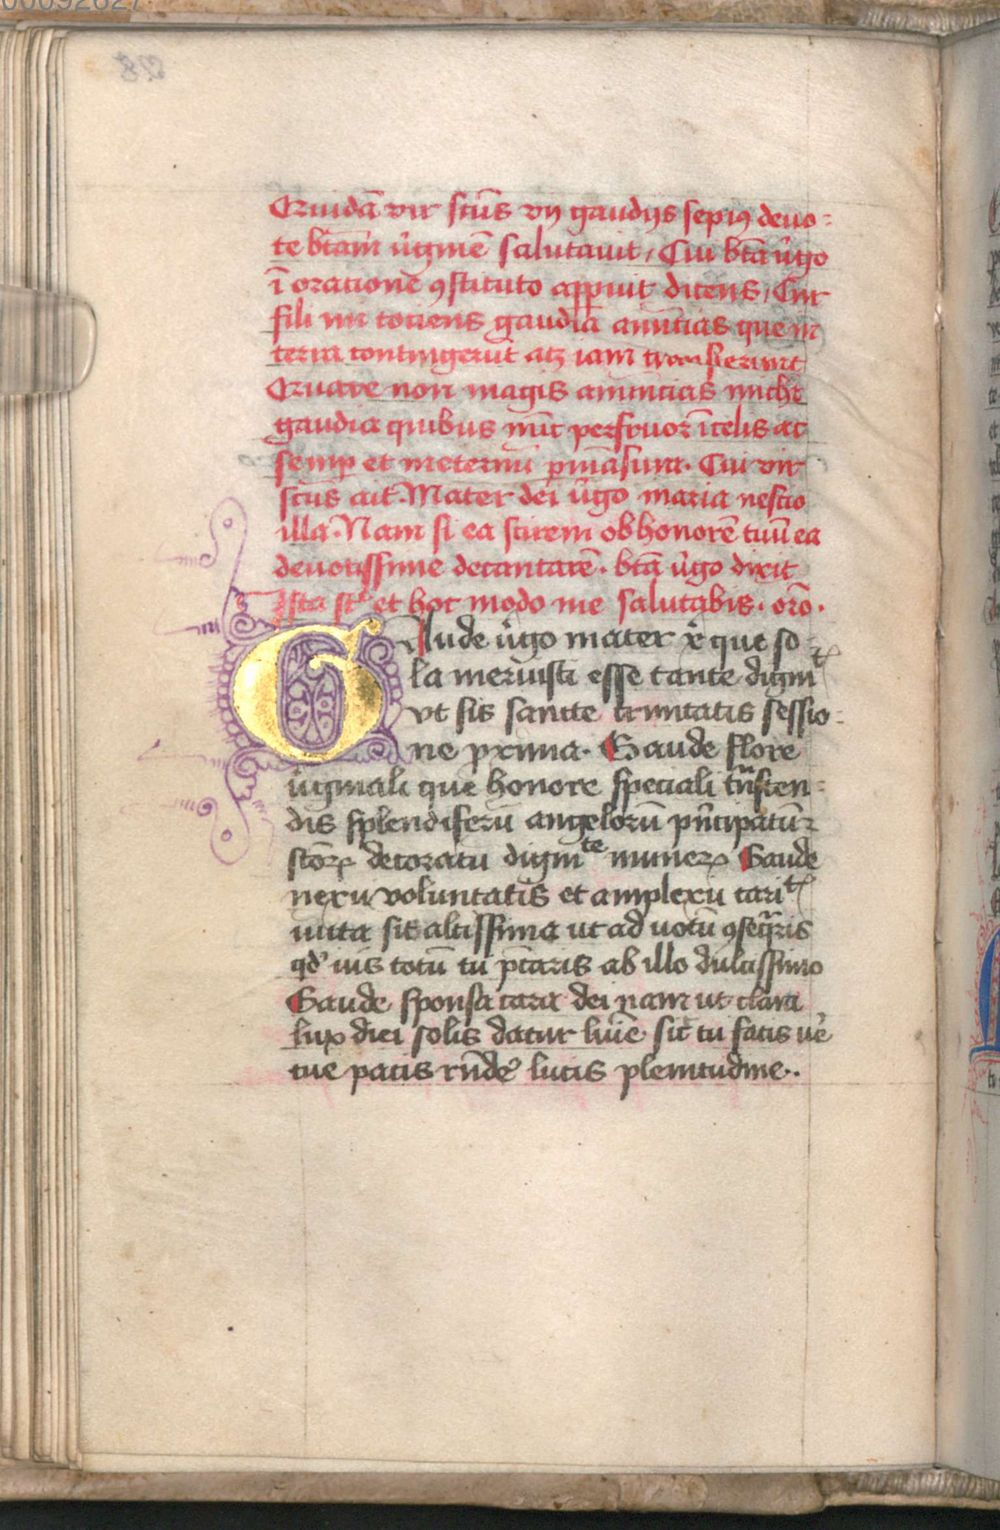 Quidā vir sctūs vij gaudijs sepiꝯ deuo-
te btām v̑gineȝ salutauit, Cui bta v̑go
ī oratione ꝯstituto apparuit dicens, Cur
fili mi tociens gaudia anūcias que in
terra contingerūt atqꝫ iam transierunt
Quare non magis anuncias michi
gaudia quibus nūc perfruor ī celis ac
semꝑ et in eternū ꝑmāsura. Cui vir
sctūs ait. Mater dei v̑go maria nescio
illa. Nam si ea scirem ob honorē tuū ea
deuotissime decantarē. bta v̑go dixit
Ista st̄ et hoc modo me salutabis. orō.
GAude v̑go mater x̄ que so-
la meruisti esse tante dignitꝭ
vt sis sancte trinitatis sessio-
ne proxima. Gaude flore
v̑ginali que honore speciali trāscen-
dis splendiferū angelorū pn̑cipatū ꝛ
sctōrꝝ decoratū dignite munerꝝ Gaude
nexu voluntatis et amplexu caritꝭ
iūcta sis altissimo ut ad votū ꝯseqrāis
qd' uis totū tu pctaris ab illo dulcissimo
Gaude sponsa cara dei nam ut clara
lux diei solis datur lumīe sic tu facis ue
tue pacis rn̄dē lucis plenitudine..